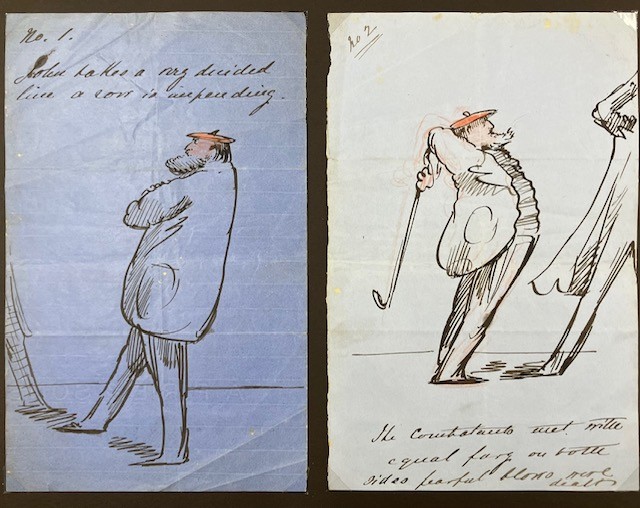 No. 1.
John takes a very decided
line a row is impending.
No 2
The Combatants met with
equal fury on both
sides fearful blows were
dealt